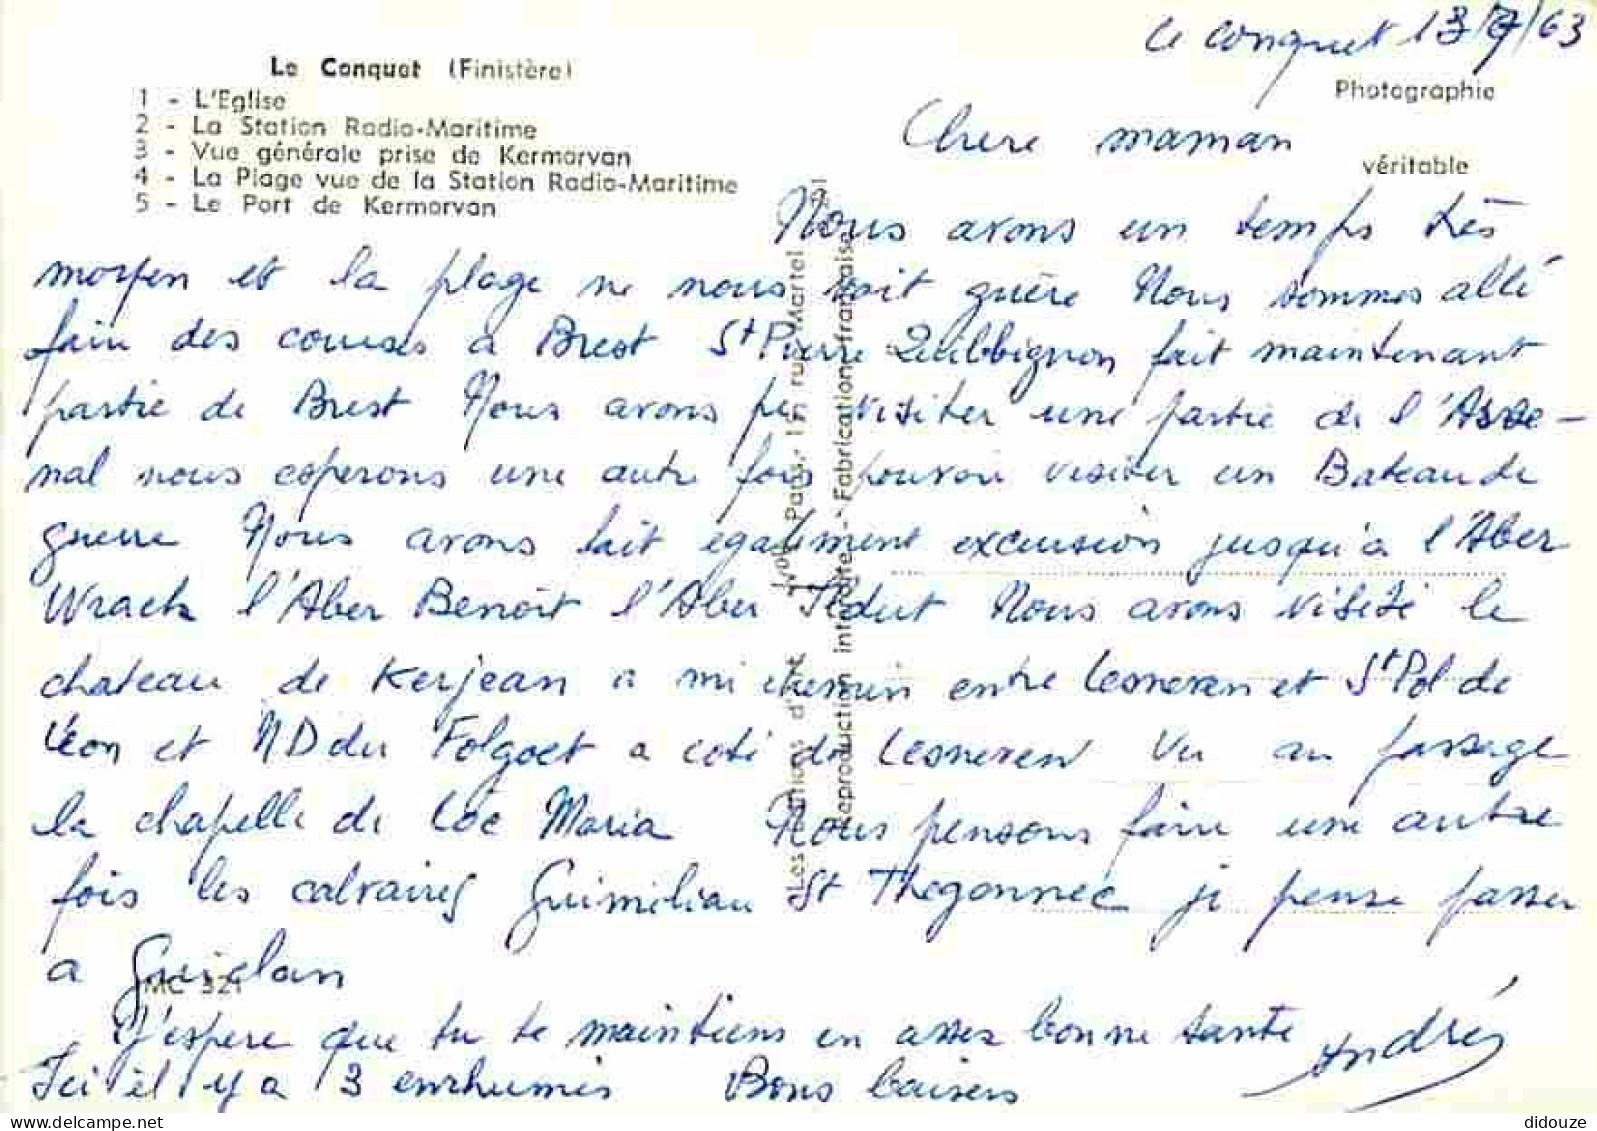 Le Conquet 13/7/63
Le Conquet (Finistère)
1 - L'Eglise
2 - La Station Radio-Maritime
3 - Vue générale prise de Kermorvan
4 - La Plage vue de la Station Radio-Maritime
5 - Le Port de Kermorvan
Photographie
véritable
Chere maman
Nous avons un temps très
moyen et la plage ne nous voit guère Nous sommes allé
faire des courses a Brest St Pierre Quilbignon fait maintenant
partie de Brest Nous avons pu visiter une partie de l'Arse-
nal nous esperons une autre fois pouvoir visiter un Bateau de
guerre Nous avons fait également excursion jusqu'à l'Aber
Wrach l'Aber Benoit l'Aber Ildut Nous avons visité le
chateau de Kerjean a mi chemin entre Lesneven et St Pol de
Léon et ND du Folgoet a coté de Lesneven Vu au passage
la chapelle de Loc Maria Nous pensons faire une autre
fois les calvaires Guimiliau St Thegonnec je pense passer
a Guiclan
J'espere que tu te maintiens en assez bonne sante
Ici il y a 3 enrhumés Bons baisers
Andrée
MC 321
Les Editions d'Art Paris rue Martel
Reproduction interdite - Fabrication française
didouze / delcampe.net